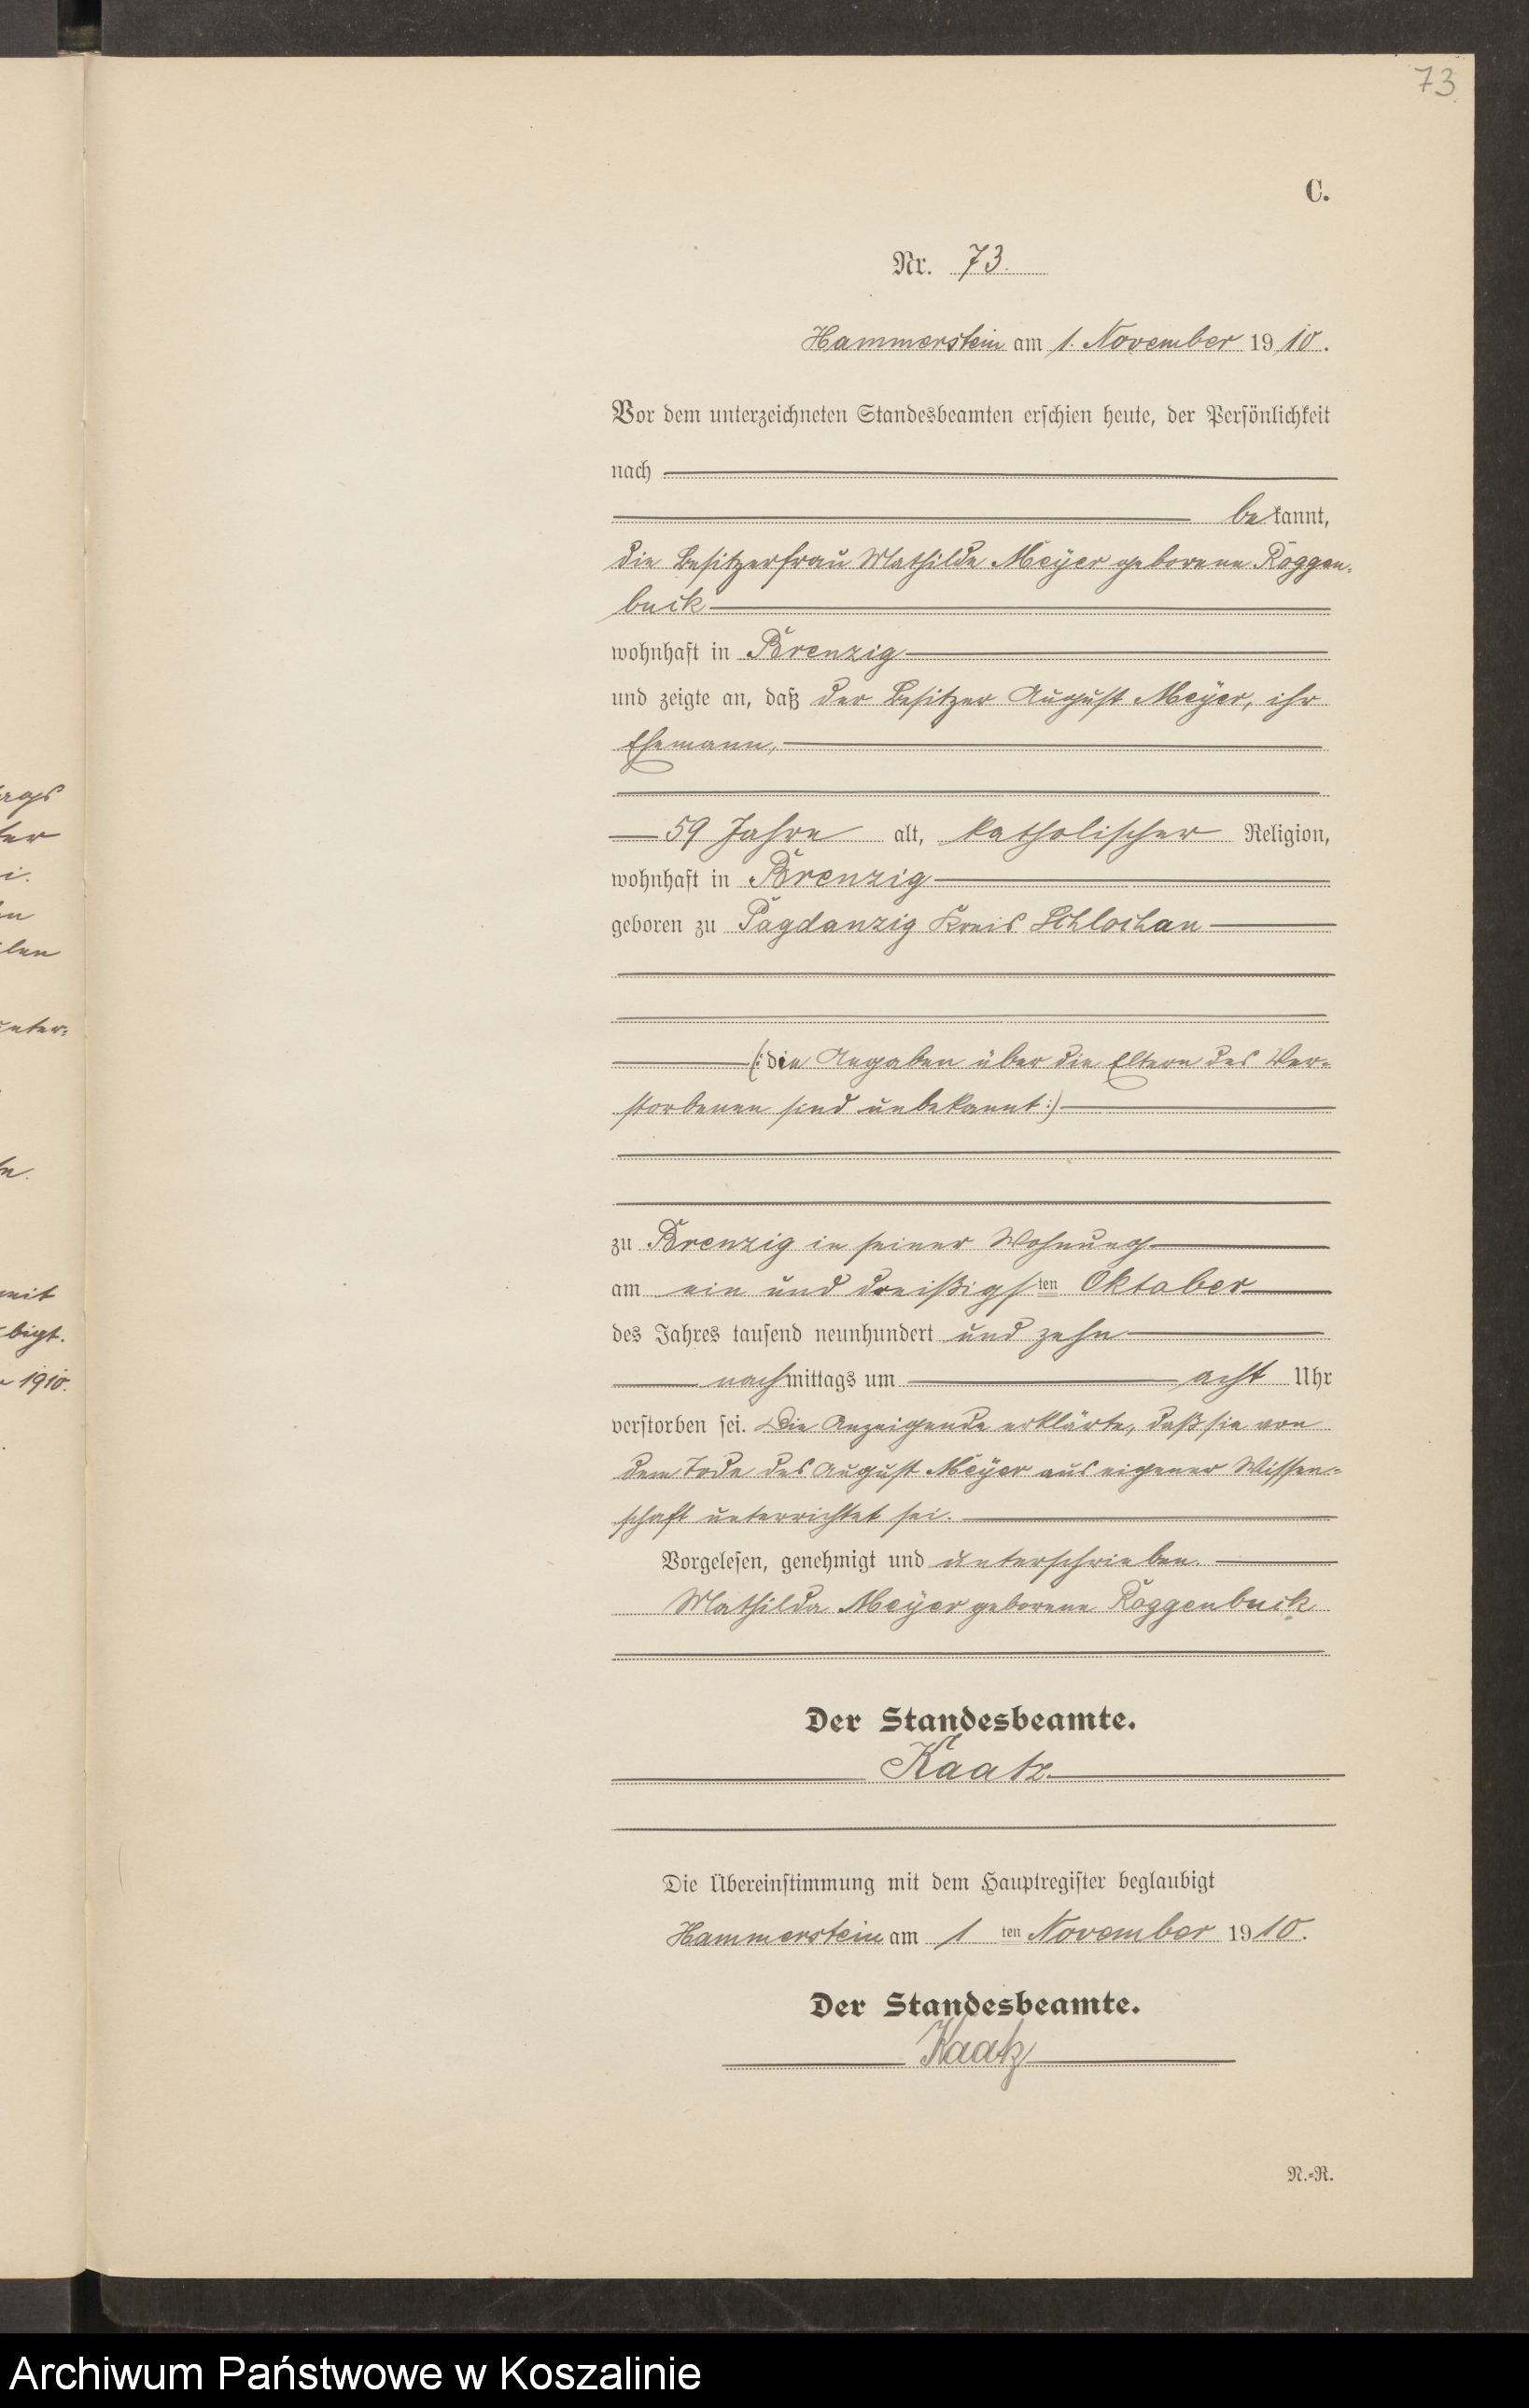 73
C.
Nr. 73.
Hammerstein am 1. November 1910.
Vor dem unterzeichneten Standesbeamten erschien heute, der Persönlichkeit
nach
bekannt,
die Besitzerfrau Mathilde Meÿer geborene Roggen-
buck
wohnhaft in Brenzig
und zeigte an, daß der Besitzer August Meÿer, ihr
Ehemann,
59 Jahre alt, katholischer Religion,
wohnhaft in Brenzig
geboren zu Pagdanzig Kreis Schlochau
(: die Angaben über die Eltern des Ver-
storbenen sind unbekannt :)
zu Brenzig in seiner Wohnung
am ein und dreißigsten Oktober
des Jahres tausend neunhundert und zehn
nachmittags um acht Uhr
verstorben sei. Die Anzeigende erklärte, daß sie von
dem Tode des August Meÿer aus eigener Wissen-
schaft unterrichtet sei.
Vorgelesen, genehmigt und unterschrieben.
Mathilde Meÿer geborene Roggenbuck
Der Standesbeamte.
Kaatz
Die Übereinstimmung mit dem Hauptregister beglaubigt
Hammerstein am 1 ten November 1910.
Der Standesbeamte.
Kaatz
N.-R.
Archiwum Państwowe w Koszalinie